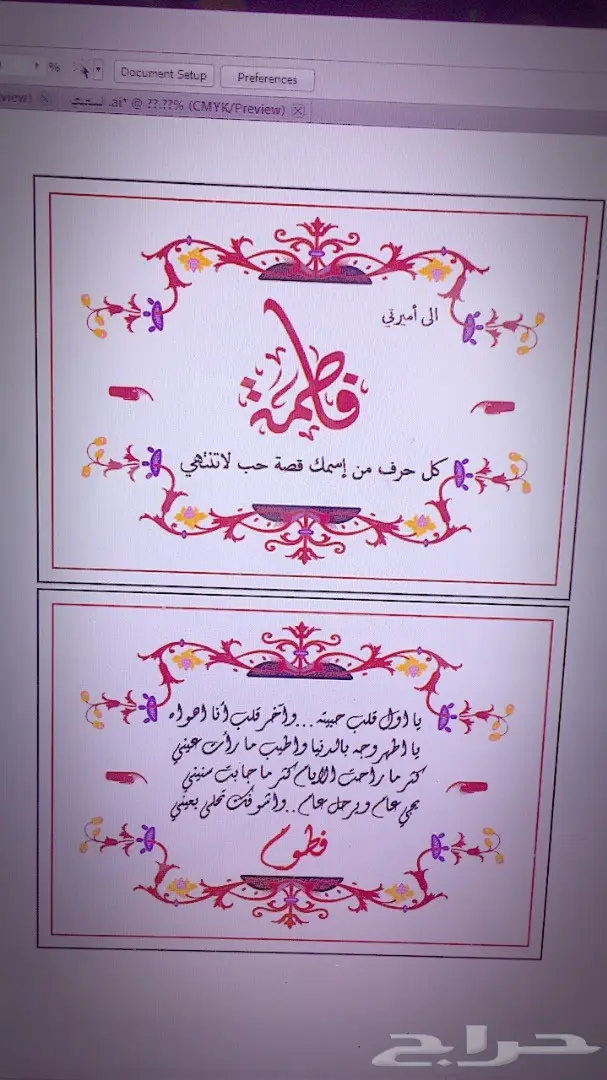 %
Document Setup
Preferences
view)
.ai* @ ??.??% (CMYK/Preview)
الى أميرتي
فاطمة
كل حرف من إسمك قصة حب لاتنتهي
يا اول قلب حبيته...وآخر قلب أنا اهواه
يا اطهر وجه بالدنيا واطيب ما رأت عيني
كثر ما راحت الايام كثر ما جابت سنيني
يجي عام ويرحل عام..واشوفك تحلى بعيني
فطوم
حراج